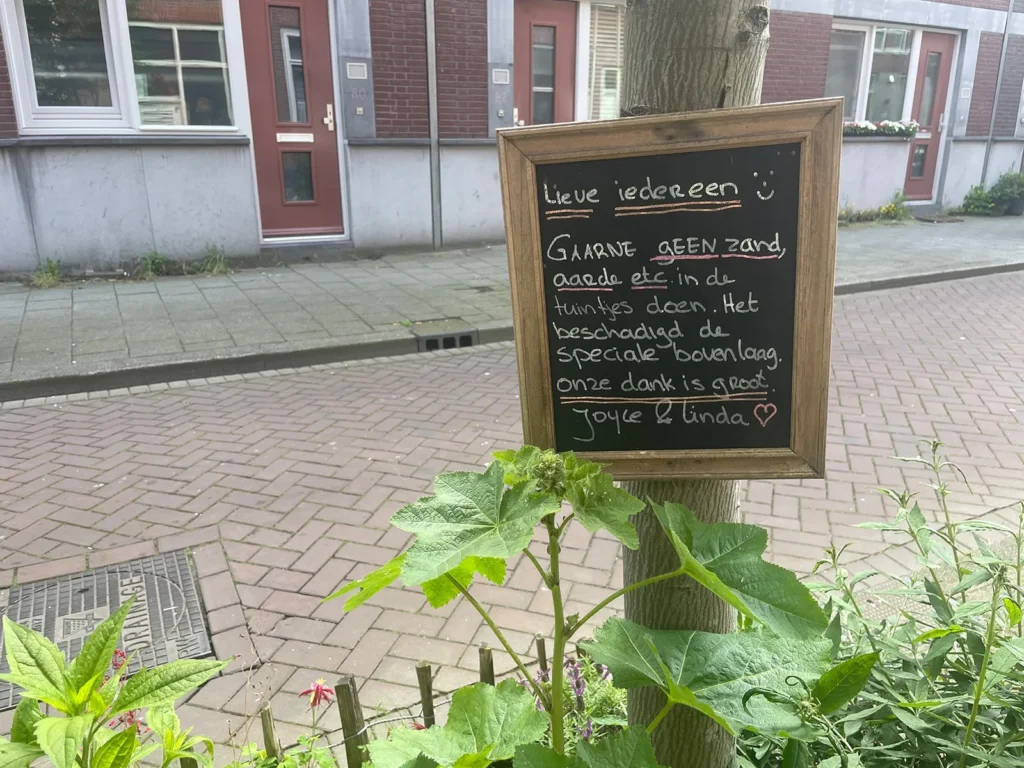 Lieve iedereen
GAARNE gEEN zand,
aarde etc. in de
tuintjes doen. Het
beschadigd de
speciale bovenlaag.
onze dank is groot.
Joyce & Linda